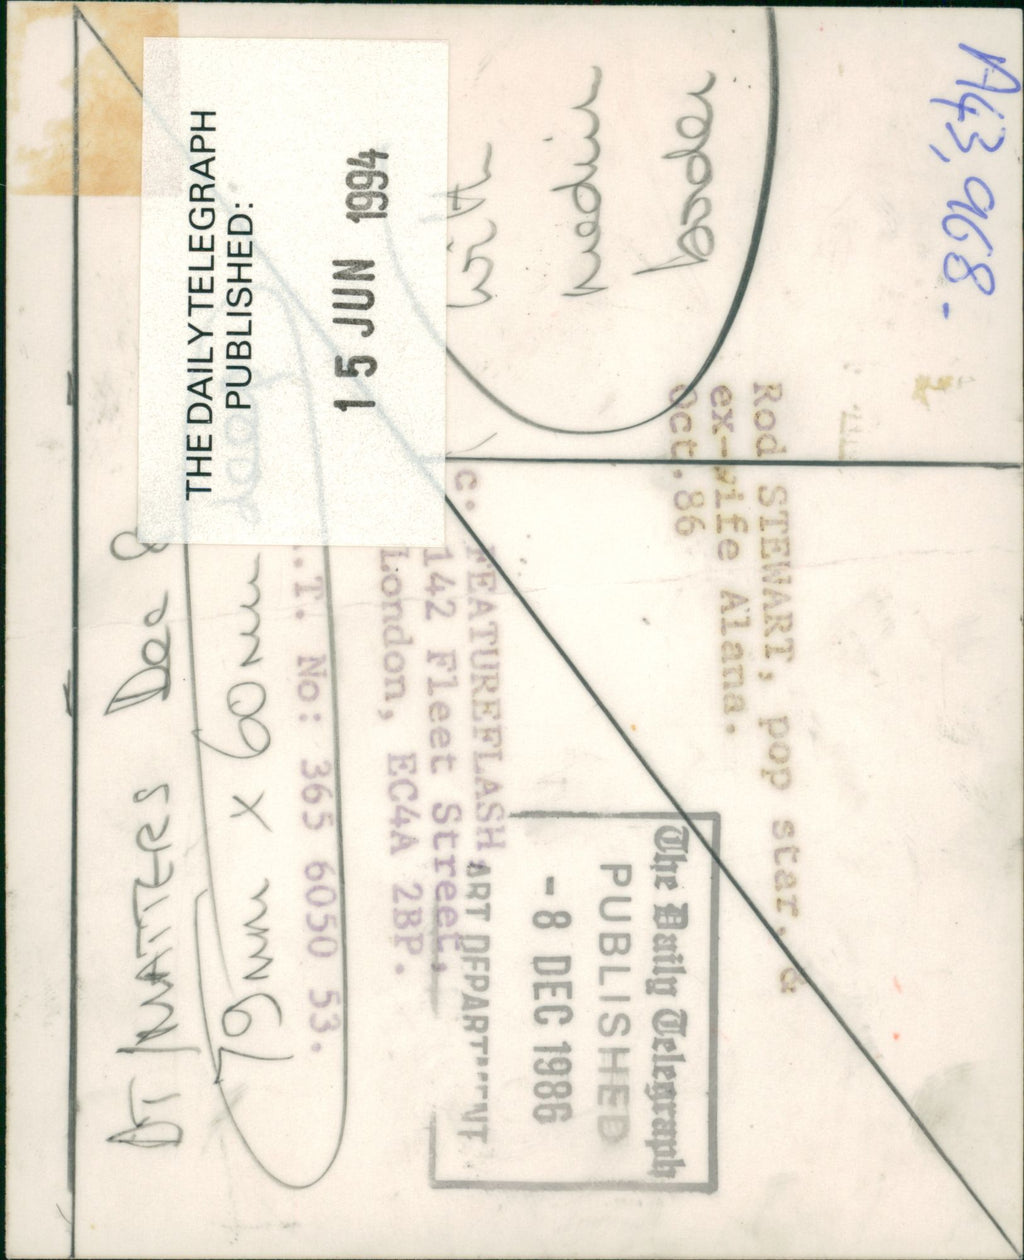 A43,968.
Rod STEWART, pop star, &
ex-wife Alana.
Oct.86
c. FEATUREFLASH,
142 Fleet Street,
London, EC4A 2BP.
.T. No: 365 6050 53.
The Daily Telegraph
PUBLISHED
- 8 DEC 1986
ART DEPARTMENT
THE DAILY TELEGRAPH
PUBLISHED:
15 JUN 1994
with
medium
border
DT MATTERS Dec 8
79mm x 60mm